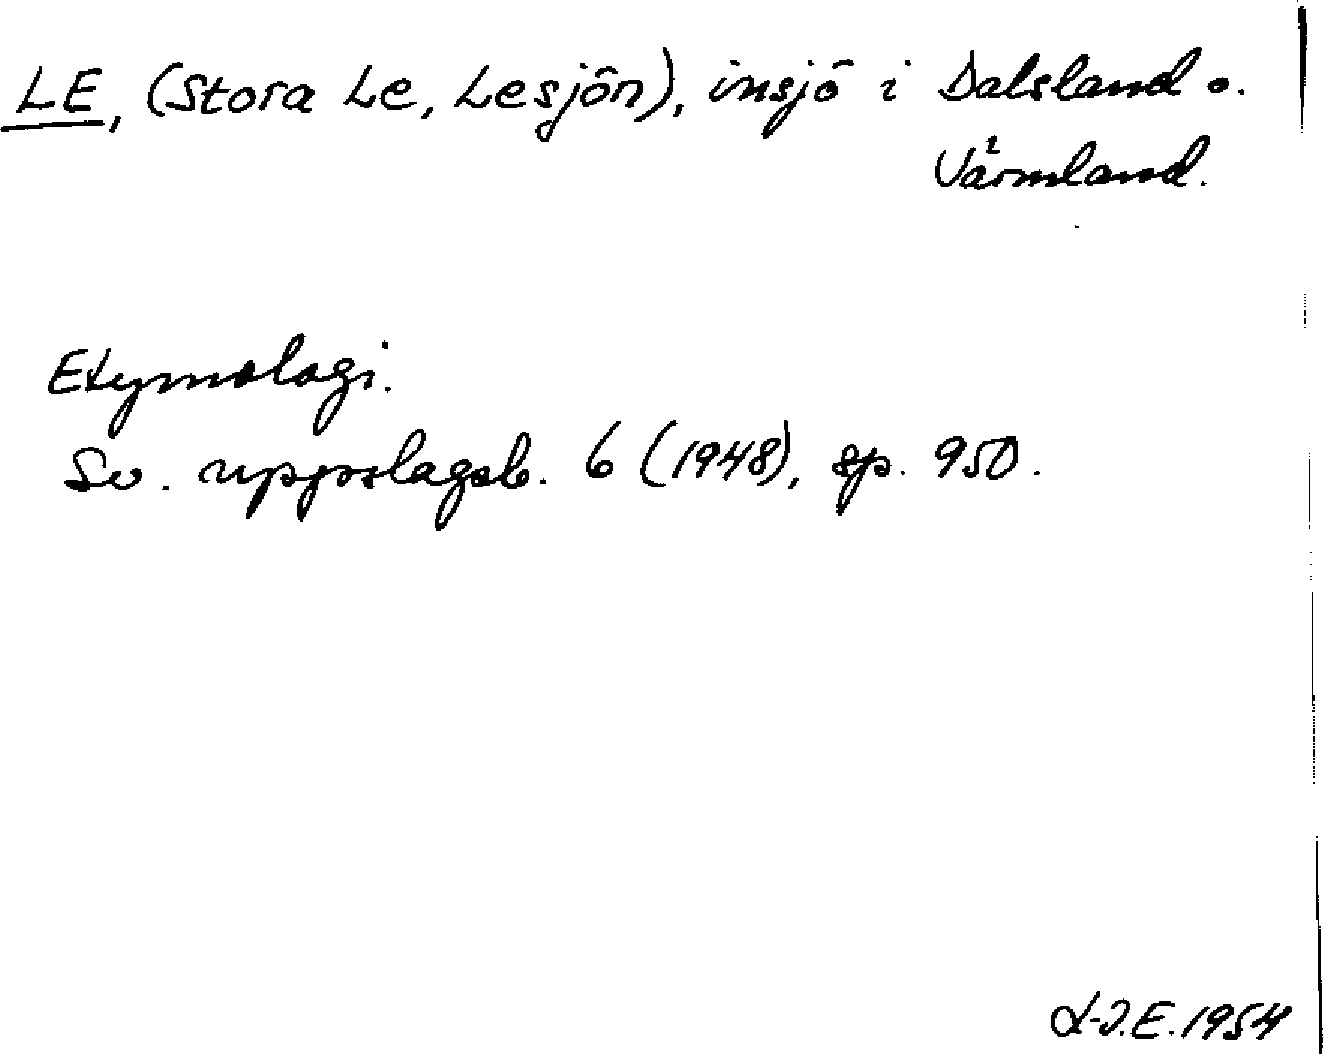 LE, (Stora Le, Lesjön), insjö i Dalsland o.
Värmland.
Etymologi.
Sv. uppslagsb. 6 (1948), sp. 950.
L-I.E. 1954